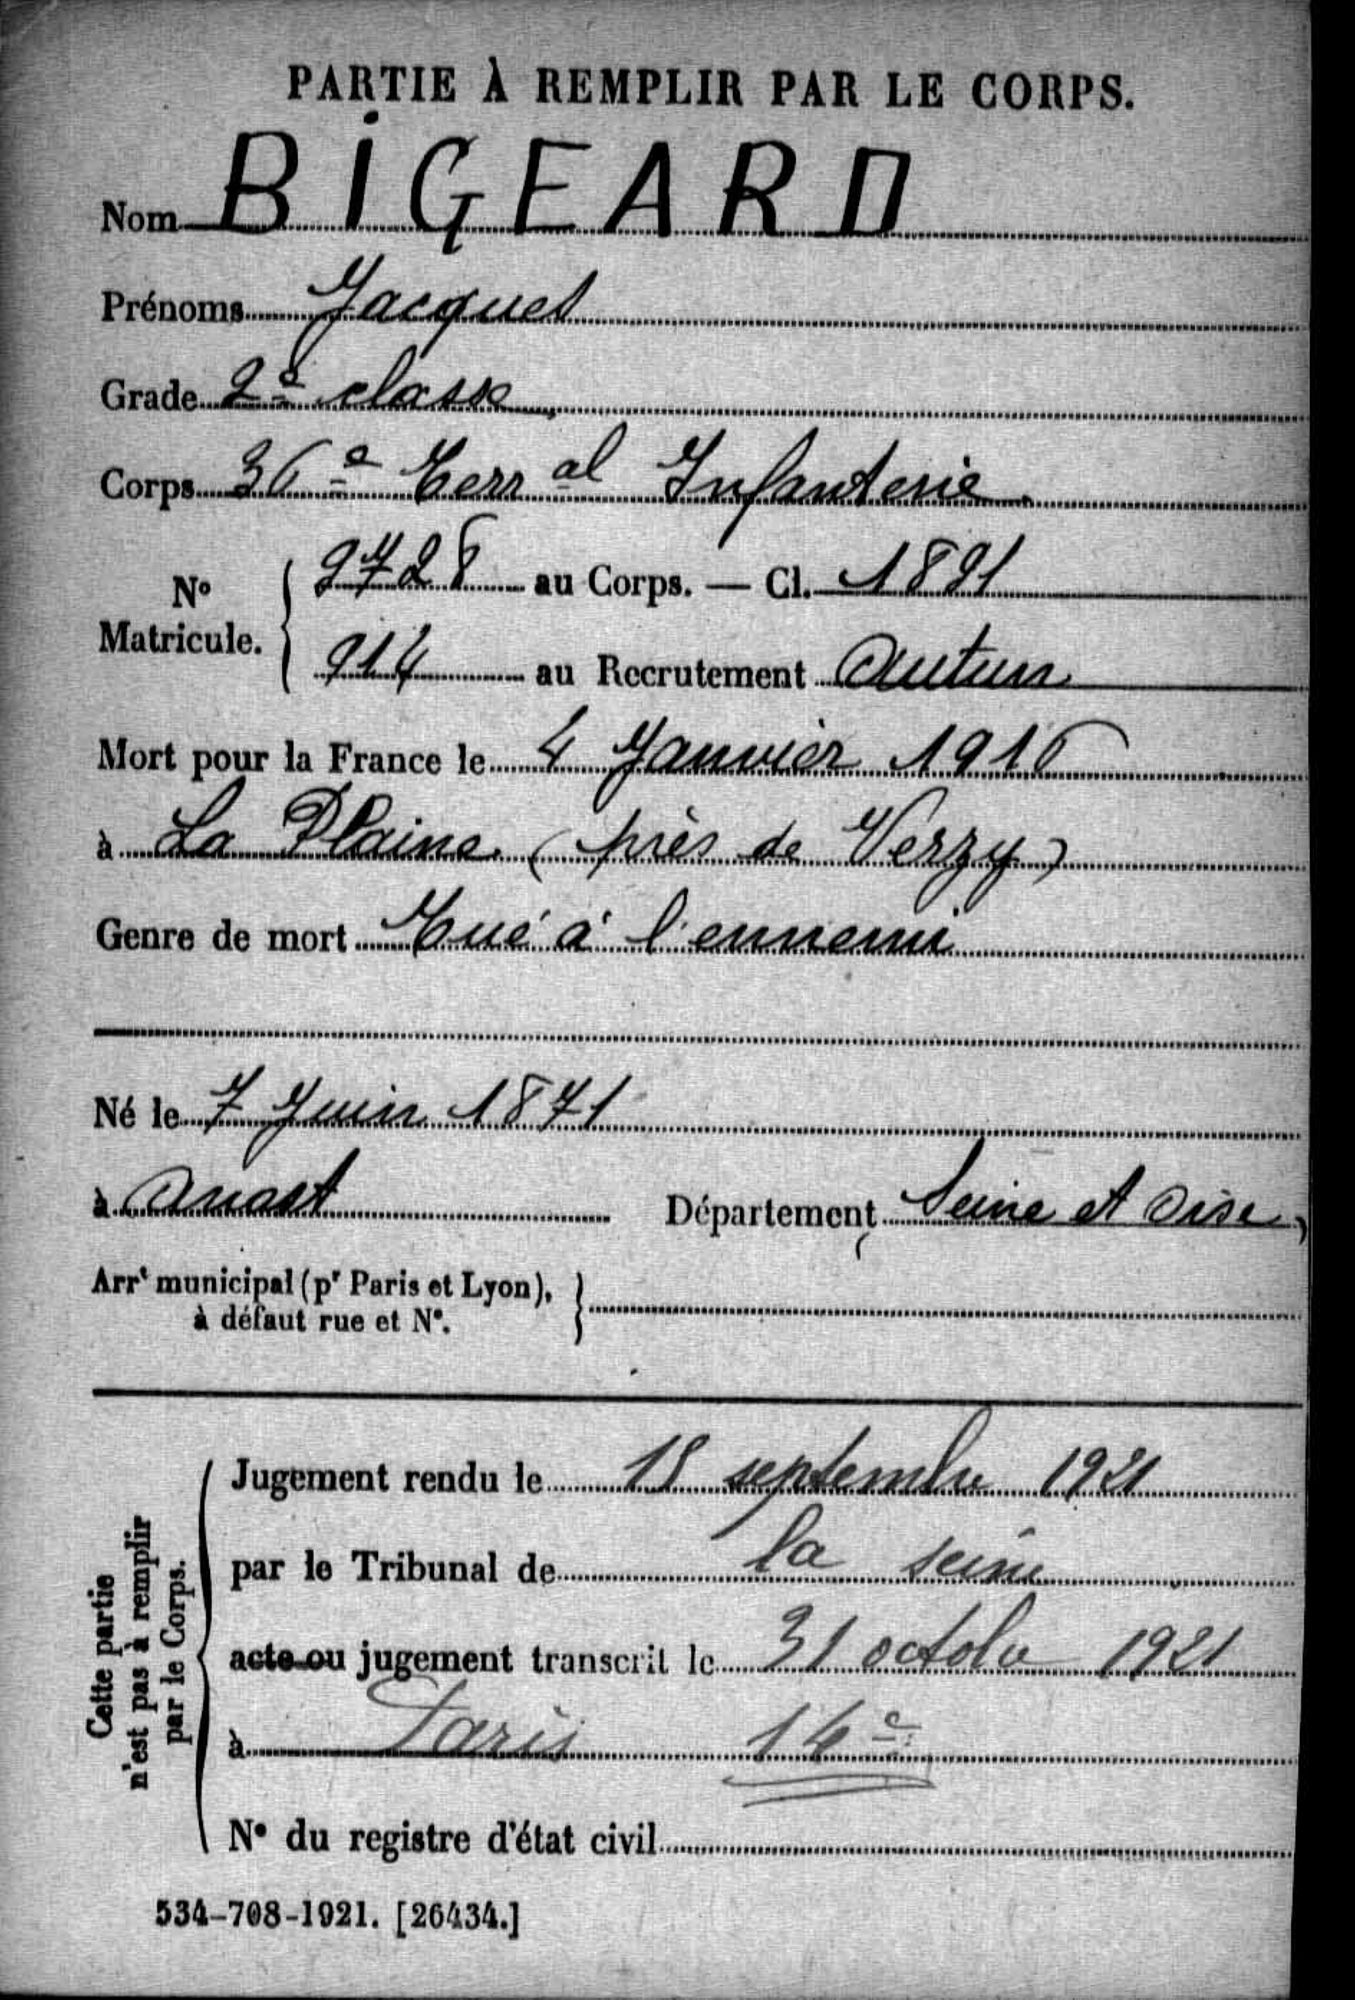 PARTIE À REMPLIR PAR LE CORPS.
Nom BIGEARD
Prénoms Jacques
Grade 2e classe
Corps 36e Terr al Infanterie
No Matricule. 9728 au Corps. — Cl. 1891
914 au Recrutement Autun
Mort pour la France le 4 Janvier 1916
à La Plaine (près de Verzy)
Genre de mort Tué à l'ennemi
Né le 7 Juin 1871
à Anost Département Seine et Oise
Arrt municipal (pr Paris et Lyon), à défaut rue et N°.
Cette partie n'est pas à remplir par le Corps.
Jugement rendu le septembre 1921
par le Tribunal de la seine
acte ou jugement transcrit le 31 octobre 1921
à Paris 14e
N° du registre d'état civil
534-708-1921. [26434.]